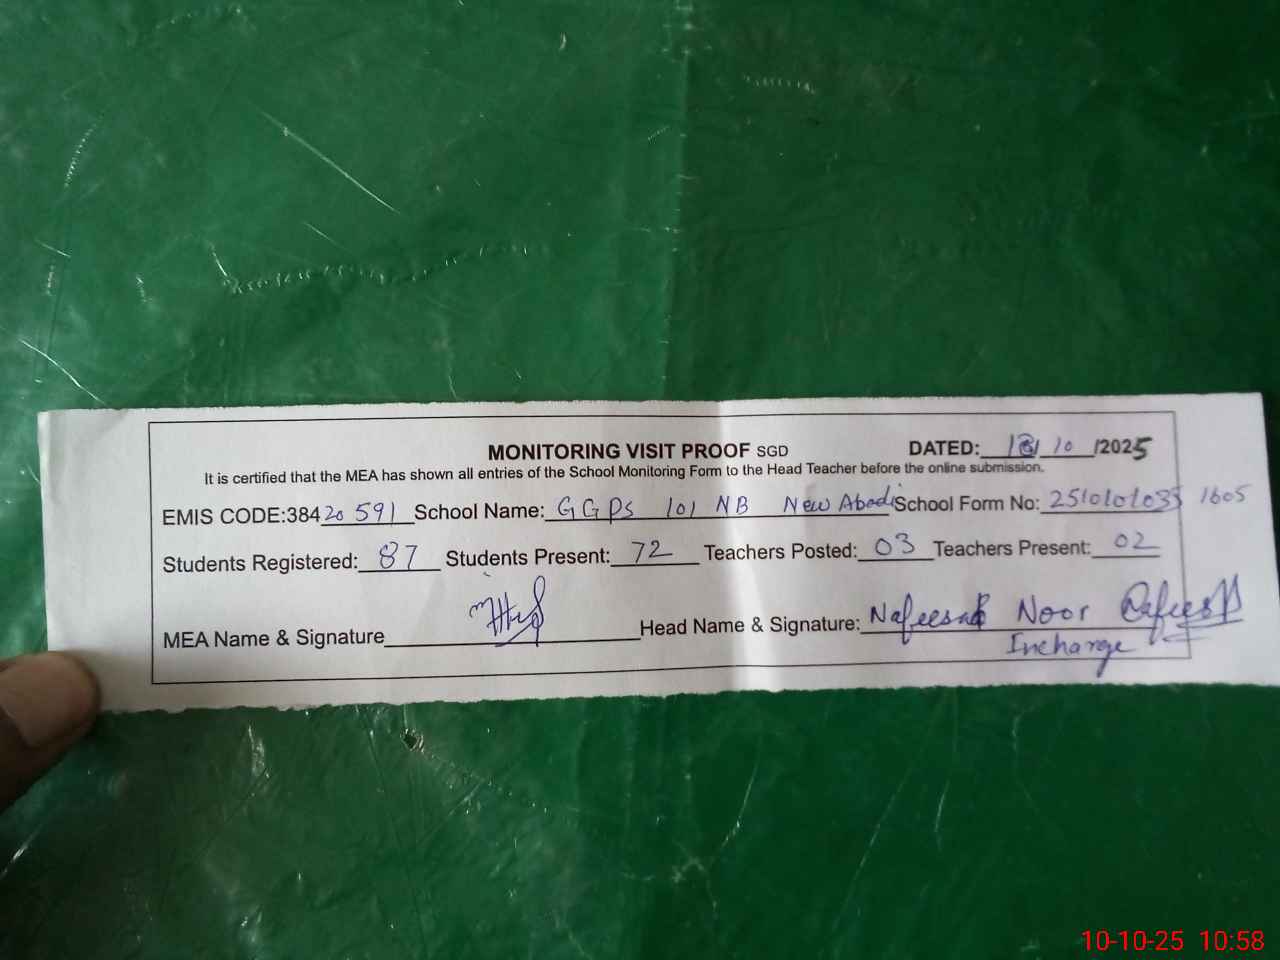 MONITORING VISIT PROOF SGD DATED: 10/10/2025
It is certified that the MEA has shown all entries of the School Monitoring Form to the Head Teacher before the online submission.
EMIS CODE:38420591 School Name: GGPS 101 NB New Abadi School Form No: 2510101035 1605
Students Registered: 87 Students Present: 72 Teachers Posted: 03 Teachers Present: 02
MEA Name & Signature Head Name & Signature: Nafeesa Noor
Incharge
10-10-25 10:58